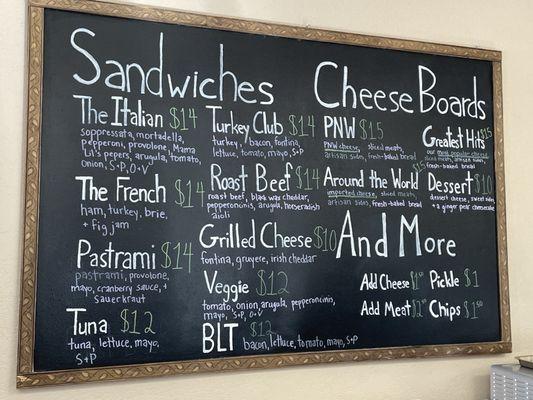 Sandwiches
The Italian $14
soppressata, mortadella,
pepperoni, provolone, Mama
Lil's pepers, arugula, tomato,
onion, S+P, O+V
The French $14
ham, turkey, brie,
+ fig jam
Pastrami $14
pastrami, provolone,
mayo, cranberry sauce, +
sauerkraut
Tuna $12
tuna, lettuce, mayo,
S+P
Turkey Club $14
turkey, bacon, fontina,
lettuce, tomato, mayo, S+P
Roast Beef $14
roast beef, blac wax cheddar,
pepperoncinis, arugula, horseradish
aioli
Grilled Cheese $10
fontina, gruyere, irish cheddar
Veggie $12
tomato, onion, arugula, pepperoncini,
mayo, S+P, O+V
BLT $12
bacon, lettuce, tomato, mayo, S+P
Cheese Boards
PNW $15
PNW cheese, sliced meats,
artisan sides, fresh-baked bread
Around the World $15
imported cheese, sliced meats,
artisan sides, fresh-baked bread
Greatest Hits $15
our most popular cheeses,
sliced meats, artisan sides,
fresh-baked bread
Dessert $10
dessert cheese, sides,
+ a ginger pear cheesecake
And More
Add Cheese $1.50
Add Meat $2.50
Pickle $1
Chips $1.50